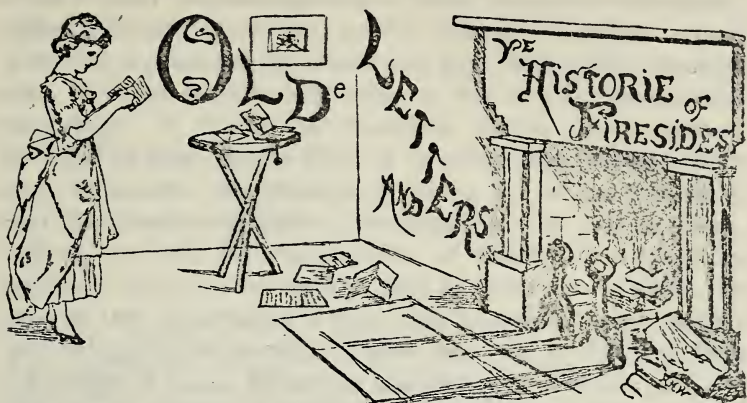 OLDe
LETTERS
AND
Ye
HISTORIE of
FIRESIDES